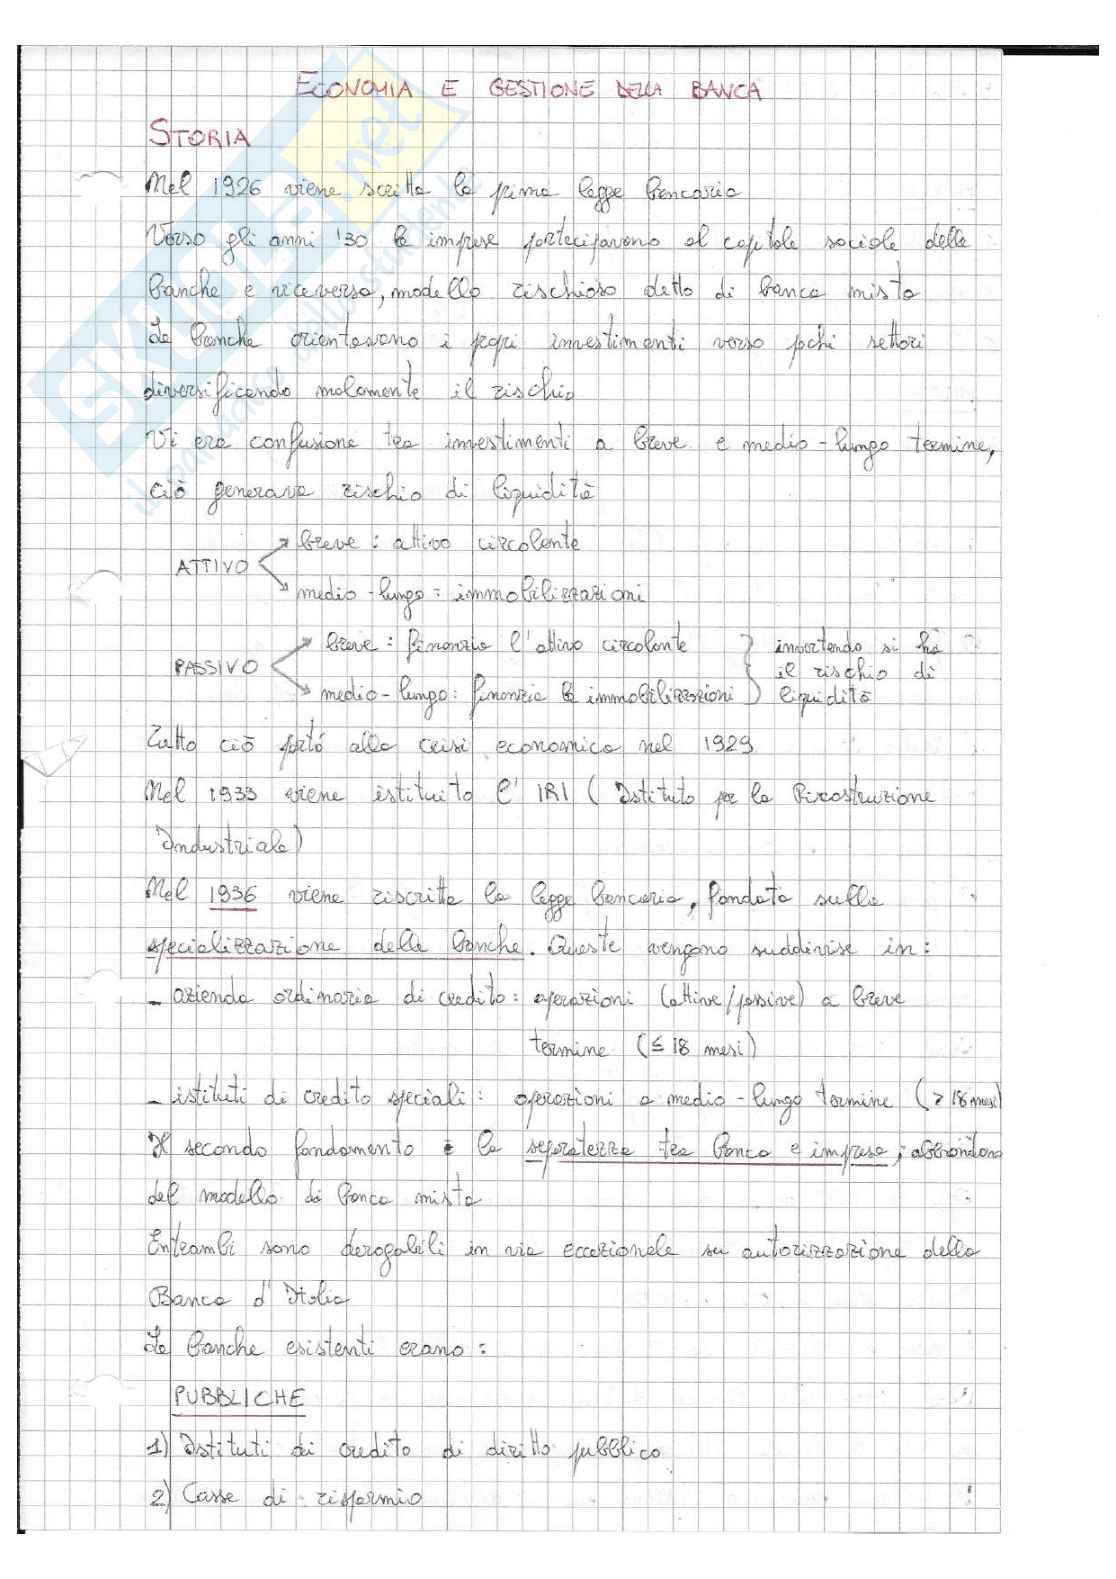 ECONOMIA E GESTIONE DELLA BANCA
STORIA
Nel 1926 viene scritta la prima legge bancaria
Verso gli anni '30 le imprese partecipavano al capitale sociale delle
banche e viceversa, modello rischioso detto di banca mista
Le banche orientavano i propri investimenti verso pochi settori
diversificando malamente il rischio
Vi era confusione tra investimenti a breve e medio-lungo termine,
ciò generava rischio di liquidità
breve : attivo circolante
ATTIVO
medio-lungo : immobilizzazioni
breve : finanzia l'attivo circolante } invertendo si ha
PASSIVO il rischio di
medio-lungo : finanzia le immobilizzazioni liquidità
Tutto ciò portò alla crisi economica nel 1929
Nel 1933 viene istituito l'IRI (Istituto per la Ricostruzione
Industriale)
Nel 1936 viene riscritta la legge bancaria, fondata sulla
specializzazione delle banche. Queste vengono suddivise in :
- azienda ordinaria di credito : operazioni (attive/passive) a breve
termine (≤ 18 mesi)
- istituti di credito speciali : operazioni a medio-lungo termine (> 18 mesi)
Il secondo fondamento è la separatezza tra banca e impresa ; abbandono
del modello di banca mista
Entrambi sono derogabili in via eccezionale su autorizzazione della
Banca d'Italia
Le banche esistenti erano :
PUBBLICHE
1) Istituti di credito di diritto pubblico
2) Casse di risparmio
SKUOLA.net